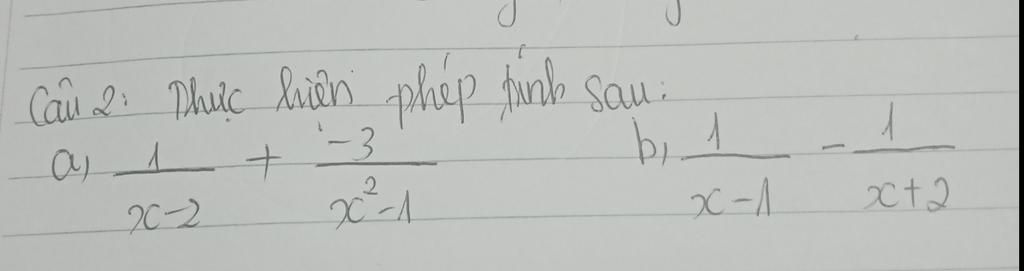 Câu 2: Thực hiện phép tính sau:
a, 1/(x-2) + -3/(x²-1) b, 1/(x-1) - 1/(x+2)